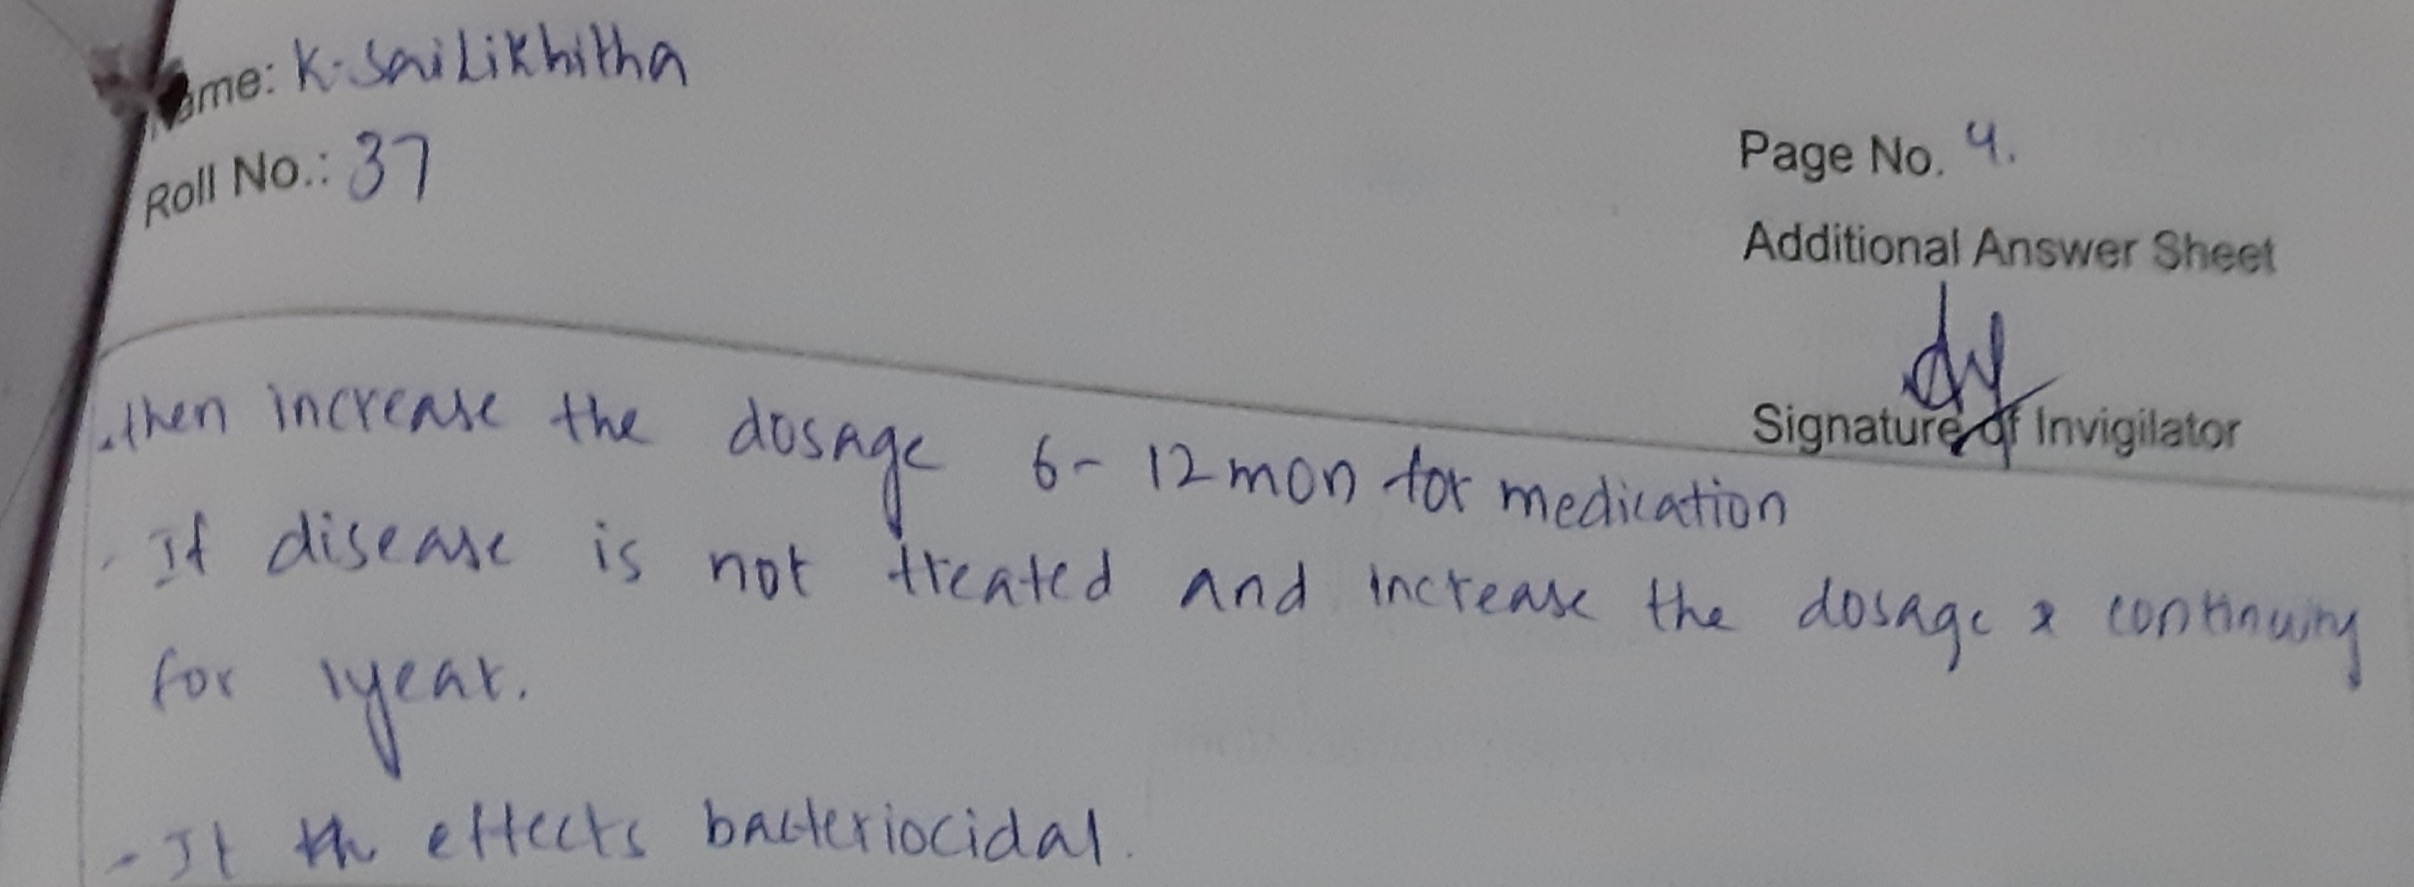 Name: K. Sai Likhitha
Roll No.: 37
Page No. 4.
Additional Answer Sheet
Signature of Invigilator
. then increase the dosage 6 - 12 mon for medication
. If disease is not treated and increase the dosage & continuing
for 1year.
- It effects bacteriocidal.